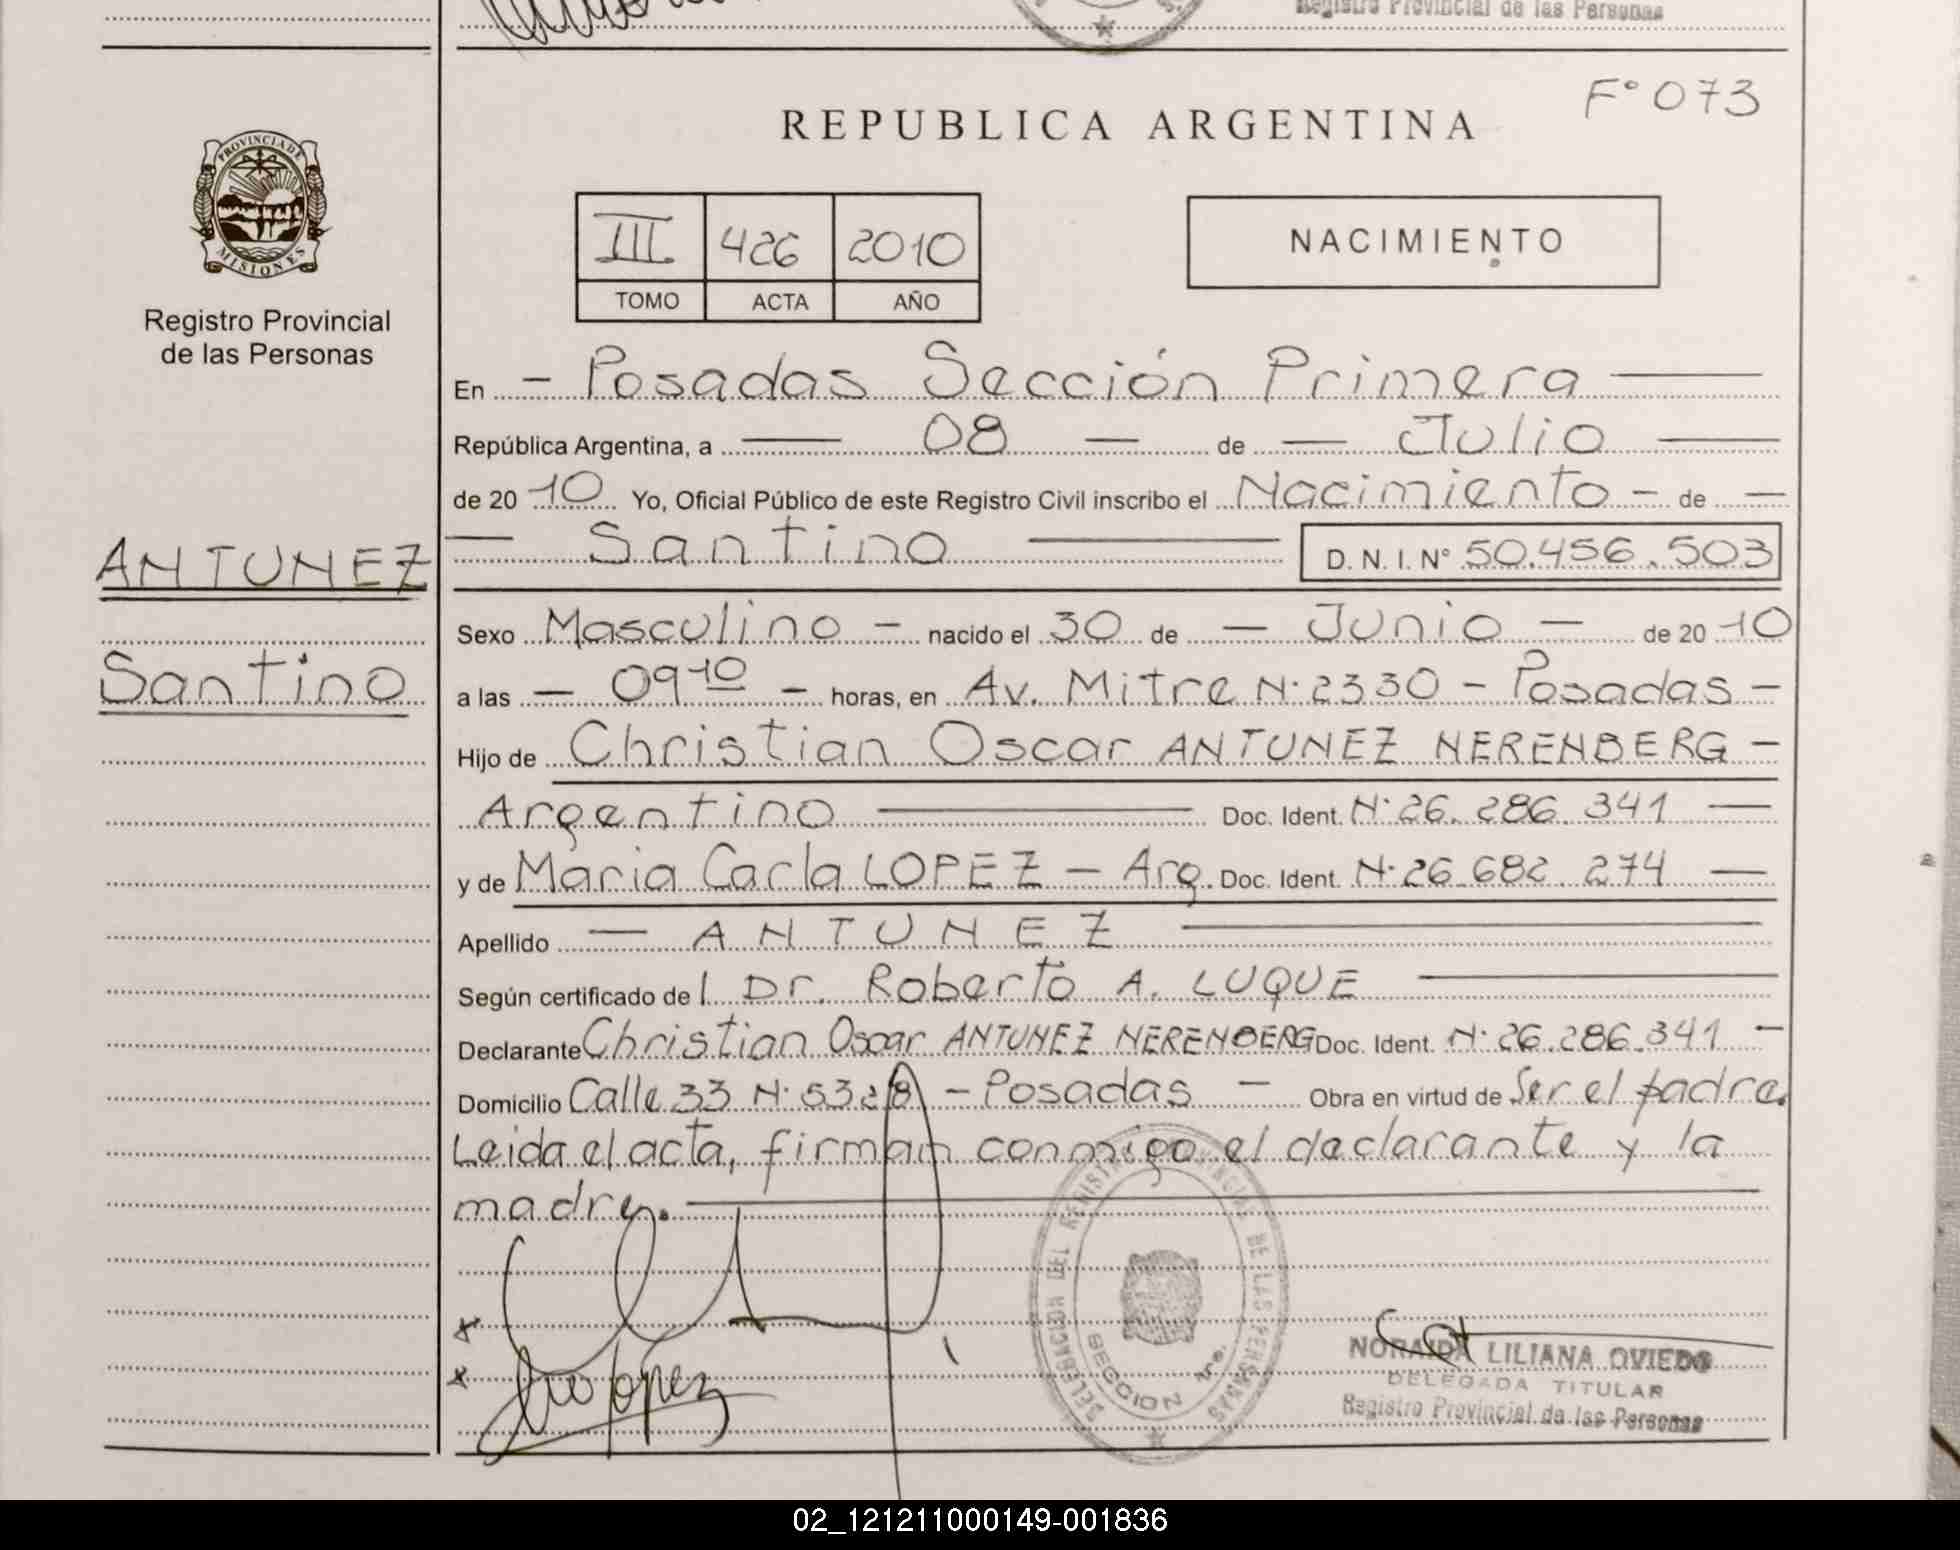 Registro Provincial de las Personas
F° 073
REPUBLICA ARGENTINA
PROVINCIA DE
MISIONES
Registro Provincial
de las Personas
III 426 2010
TOMO ACTA AÑO
NACIMIENTO
En - Posadas Sección Primera
República Argentina, a 08 de Julio
de 20 10 Yo, Oficial Público de este Registro Civil inscribo el Nacimiento - de
Santino D. N. I. N° 50.456.503
ANTUNEZ
Santino
Sexo Masculino - nacido el 30 de - Junio - de 20 10
a las - 09 10 - horas, en Av. Mitre N° 2330 - Posadas -
Hijo de Christian Oscar ANTUNEZ NERENBERG -
Argentino Doc. Ident. N° 26.286.341
y de Maria Carla LOPEZ - Arg. Doc. Ident. N° 26.682.274
Apellido - ANTUNEZ
Según certificado del Dr. Roberto A. LUQUE
Declarante Christian Oscar ANTUNEZ NERENBERG Doc. Ident. N° 26.286.341 -
Domicilio Calle 33 N° 5328 - Posadas - Obra en virtud de Ser el padre.
Leida el acta, firman conmigo el declarante y la
madre.
DELEGACION DEL REGISTRO PROVINCIAL DE LAS PERSONAS
SECCION 1ra.
Lopez
NORAIDA LILIANA OVIEDO
DELEGADA TITULAR
Registro Provincial de las Personas
02_121211000149-001836